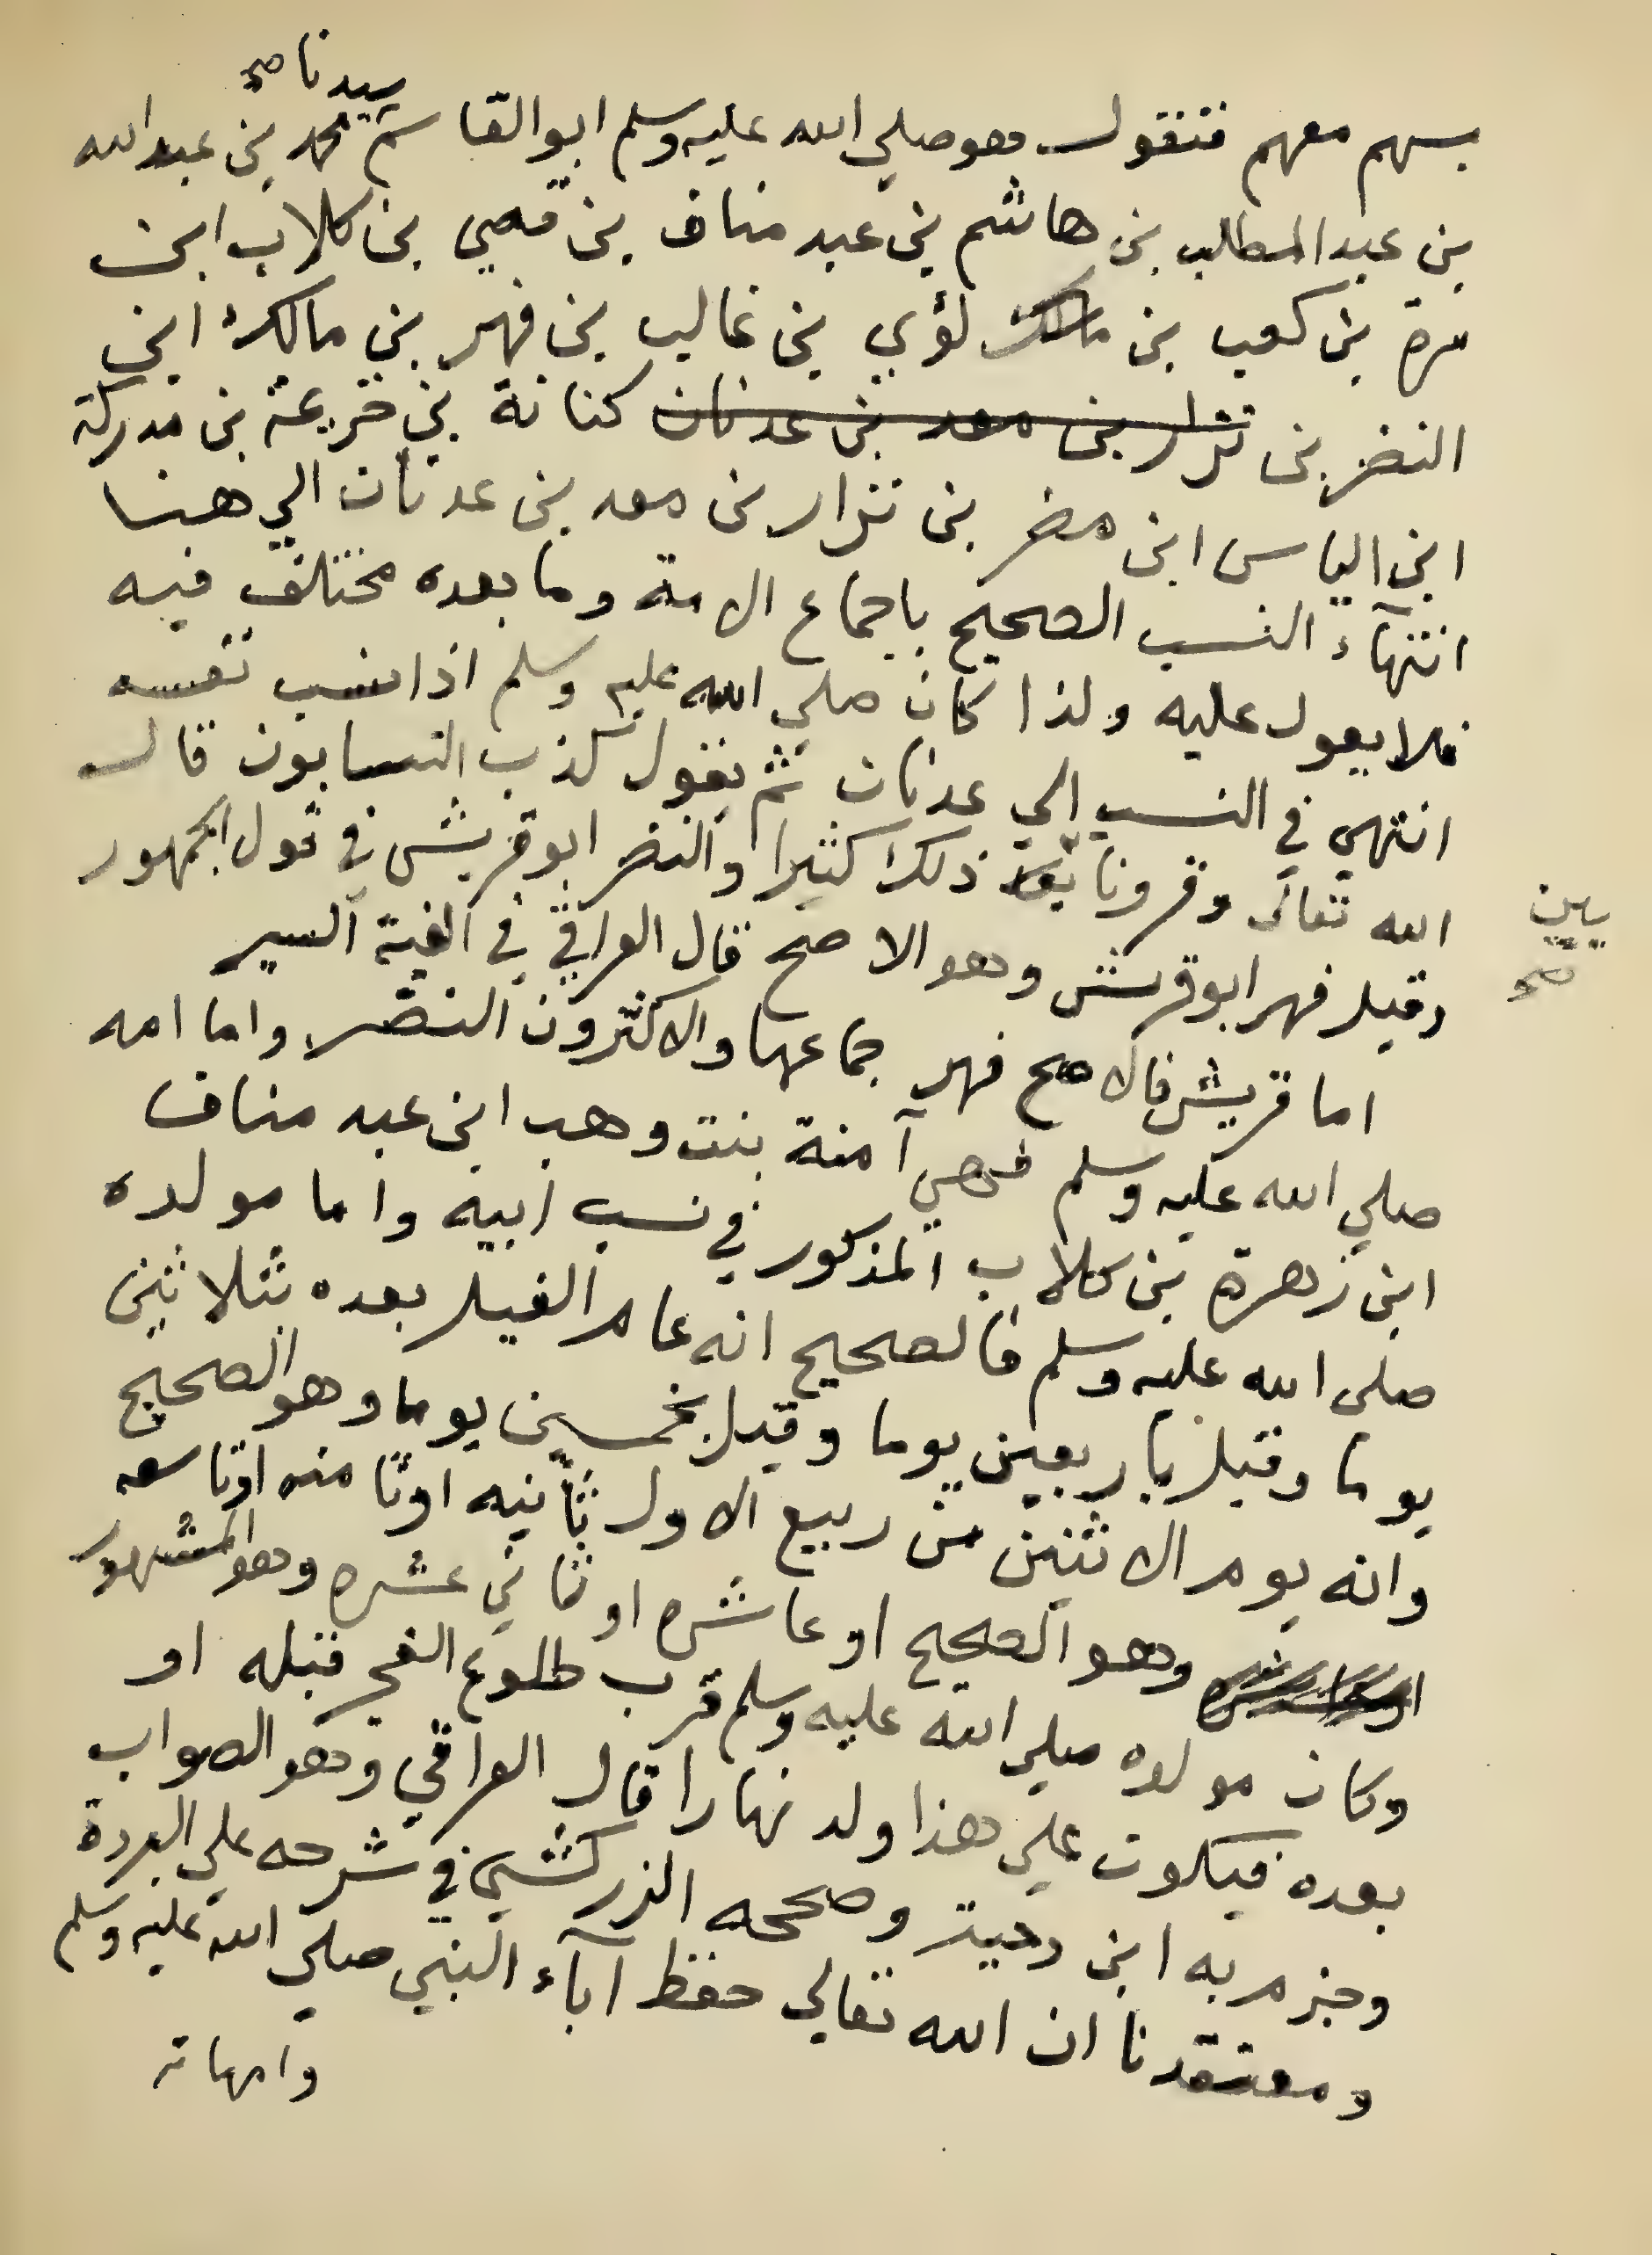 سيدنا صح
بسهم معهم فنقول وهو صلي الله عليه وسلم ابو القاسم محمد بن عبد الله
بن عبد المطلب بن هاشم بن عبد مناف بن قصي بن كلاب ابن
مرة بن كعب بن مالك لؤي بن غالب بن فهر بن مالك ابن
النضر بن نزار بن معد بن عدنان كنانة بن خزيمة بن مدركة
ابن الياس ابن مضر بن نزار بن معد بن عدنان الي هنا
انتهآء النسب الصحيح باجماع الامة وما بعده مختلف فيه
فلا يعول عليه ولذا كان صلي الله عليه وسلم اذا انسب نفسه
انتهي في النسب الي عدنان ثم يقول كذب النسابون قال
الله تعالى وقرونا بين ذلك كثيرا والنضر ابو قريش في قول الجمهور
بين صح
وقيل فهر ابو قريش وهو الاصح قال العراقي في الفية السير
اما قريش فالاصح فهر جماعها والاكثرون النضر واما امه
صلي الله عليه وسلم فهي آمنة بنت وهب ابن عبد مناف
ابن زهرة بن كلاب المذكور في نسب ابيه واما مولده
صلى الله عليه وسلم فالصحيح انه عام الفيل بعده بثلاثين
يوما وقيل باربعين يوما وقيل بخمسين يوما وهو الصحيح
وانه يوم الاثنين من ربيع الاول ثانيه او ثامنه او تاسعه
وهو الصحيح او عاشره او ثاني عشره وهو المشهور
وكان مولده صلى الله عليه وسلم قرب طلوع الفجر قبله او
بعده فيكون علي هذا ولد نهارا قال العراقي وهو الصواب
وجزم به ابن دحية وصححه الزركشي في شرحه علي البردة
ومعتقدنا ان الله تعالي حفظ آبآء النبي صلي الله عليه وسلم
وامهاته